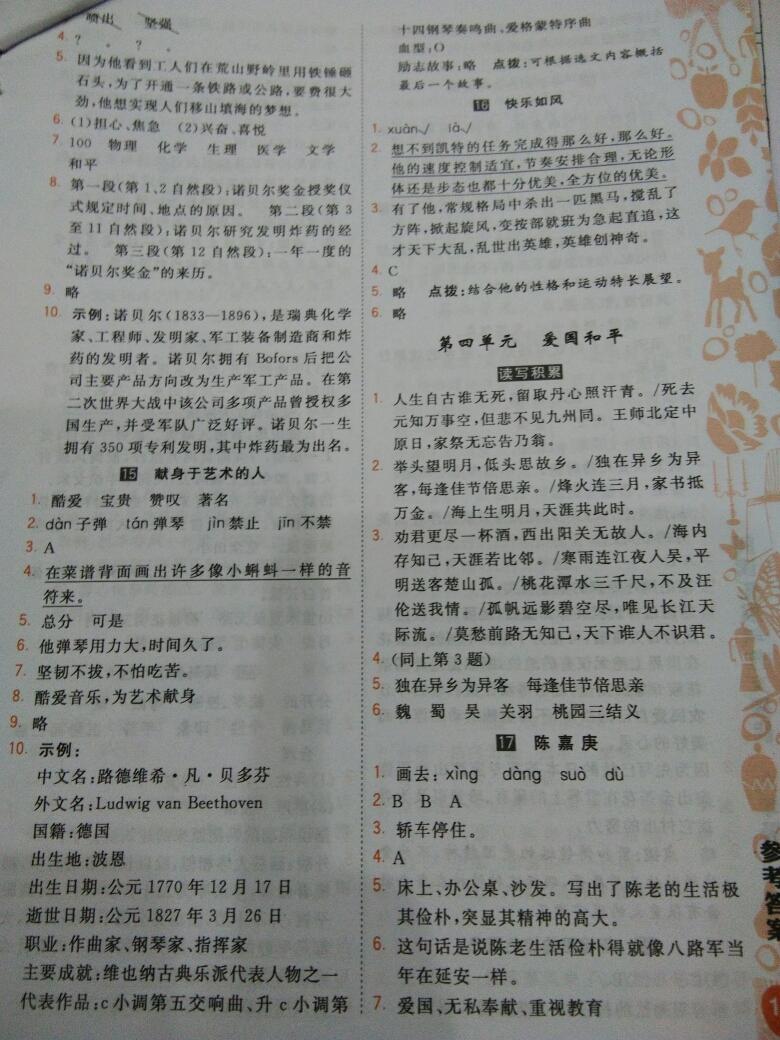 喷出 坚强
4. ? 。 ? 。
5. 因为他看到工人们在荒山野岭里用铁锤砸
石头,为了开通一条铁路或公路,要费很大
劲,他想实现人们移山填海的梦想。
6. (1)担心、焦急 (2)兴奋、喜悦
7. 100 物理 化学 生理 医学 文学
和平
8. 第一段(第1、2自然段):诺贝尔奖金授奖仪
式规定时间、地点的原因。 第二段(第3
至11自然段):诺贝尔研究发明炸药的经
过。 第三段(第12自然段):一年一度的
“诺贝尔奖金”的来历。
9. 略
10. 示例:诺贝尔(1833—1896),是瑞典化学
家、工程师、发明家、军工装备制造商和炸
药的发明者。诺贝尔拥有 Bofors 后把公
司主要产品方向改为生产军工产品。在第
二次世界大战中该公司多项产品曾授权多
国生产,并受军队广泛好评。诺贝尔一生
拥有350项专利发明,其中炸药最为出名。
15 献身于艺术的人
1. 酷爱 宝贵 赞叹 著名
2. dàn子弹 tán弹琴 jìn禁止 jīn不禁
3. A
4. 在菜谱背面画出许多像小蝌蚪一样的音
符来。
5. 总分 可是
6. 他弹琴用力大,时间久了。
7. 坚韧不拔,不怕吃苦。
8. 酷爱音乐,为艺术献身
9. 略
10. 示例:
中文名:路德维希·凡·贝多芬
外文名:Ludwig van Beethoven
国籍:德国
出生地:波恩
出生日期:公元1770年12月17日
逝世日期:公元1827年3月26日
职业:作曲家、钢琴家、指挥家
主要成就:维也纳古典乐派代表人物之一
代表作品:c小调第五交响曲、升c小调第
十四钢琴奏鸣曲、爱格蒙特序曲
血型:O
励志故事:略 点拨:可根据选文内容概括
最后一个故事。
16 快乐如风
1. xuàn√ ià√
2. 想不到凯特的任务完成得那么好,那么好。
他的速度控制适宜,节奏安排合理,无论形
体还是步态也都十分优美,全方位的优美。
3. 有了他,常规格局中杀出一匹黑马,搅乱了
方阵,掀起旋风,变按部就班为急起直追,这
才天下大乱,乱世出英雄,英雄创神奇。
4. C
5. 略 点拨:结合他的性格和运动特长展望。
6. 略
第四单元 爱国和平
读写积累
1. 人生自古谁无死,留取丹心照汗青。/死去
元知万事空,但悲不见九州同。王师北定中
原日,家祭无忘告乃翁。
2. 举头望明月,低头思故乡。/独在异乡为异
客,每逢佳节倍思亲。/烽火连三月,家书抵
万金。/海上生明月,天涯共此时。
3. 劝君更尽一杯酒,西出阳关无故人。/海内
存知己,天涯若比邻。/寒雨连江夜入吴,平
明送客楚山孤。/桃花潭水三千尺,不及汪
伦送我情。/孤帆远影碧空尽,唯见长江天
际流。/莫愁前路无知己,天下谁人不识君。
4. (同上第3题)
5. 独在异乡为异客 每逢佳节倍思亲
6. 魏 蜀 吴 关羽 桃园三结义
17 陈嘉庚
1. 画去:xìng dàng suò dù
2. B B A
3. 轿车停住。
4. A
5. 床上、办公桌、沙发。写出了陈老的生活极
其俭朴,突显其精神的高大。
6. 这句话是说陈老生活俭朴得就像八路军当
年在延安一样。
7. 爱国、无私奉献、重视教育
参考答案